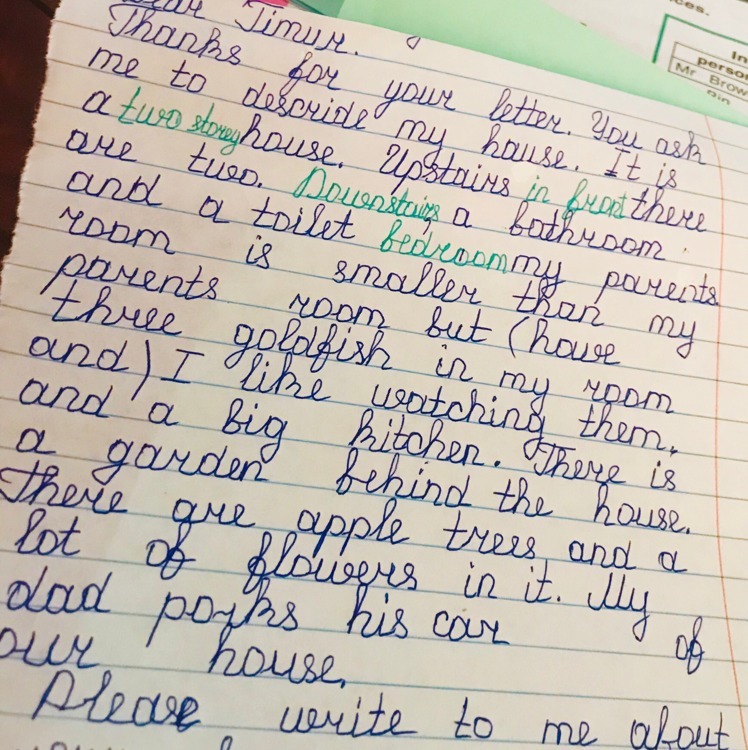 ear Timur.
Thanks for your letter. You ask
me to descride my hause. It is
a two storey house. Upstairs in front there
are two. Downstairs a bathroom
and a toilet bedroom my parents
room is smaller than my
parents room but (have
three goldfish in my room
and) I like watching them,
and a big kitchen. There is
a garden behind the house.
There are apple trees and a
lot of flowers in it. My
dad parks his car of
our house.
Please write to me about
ces.
In
perso
Mr Brow